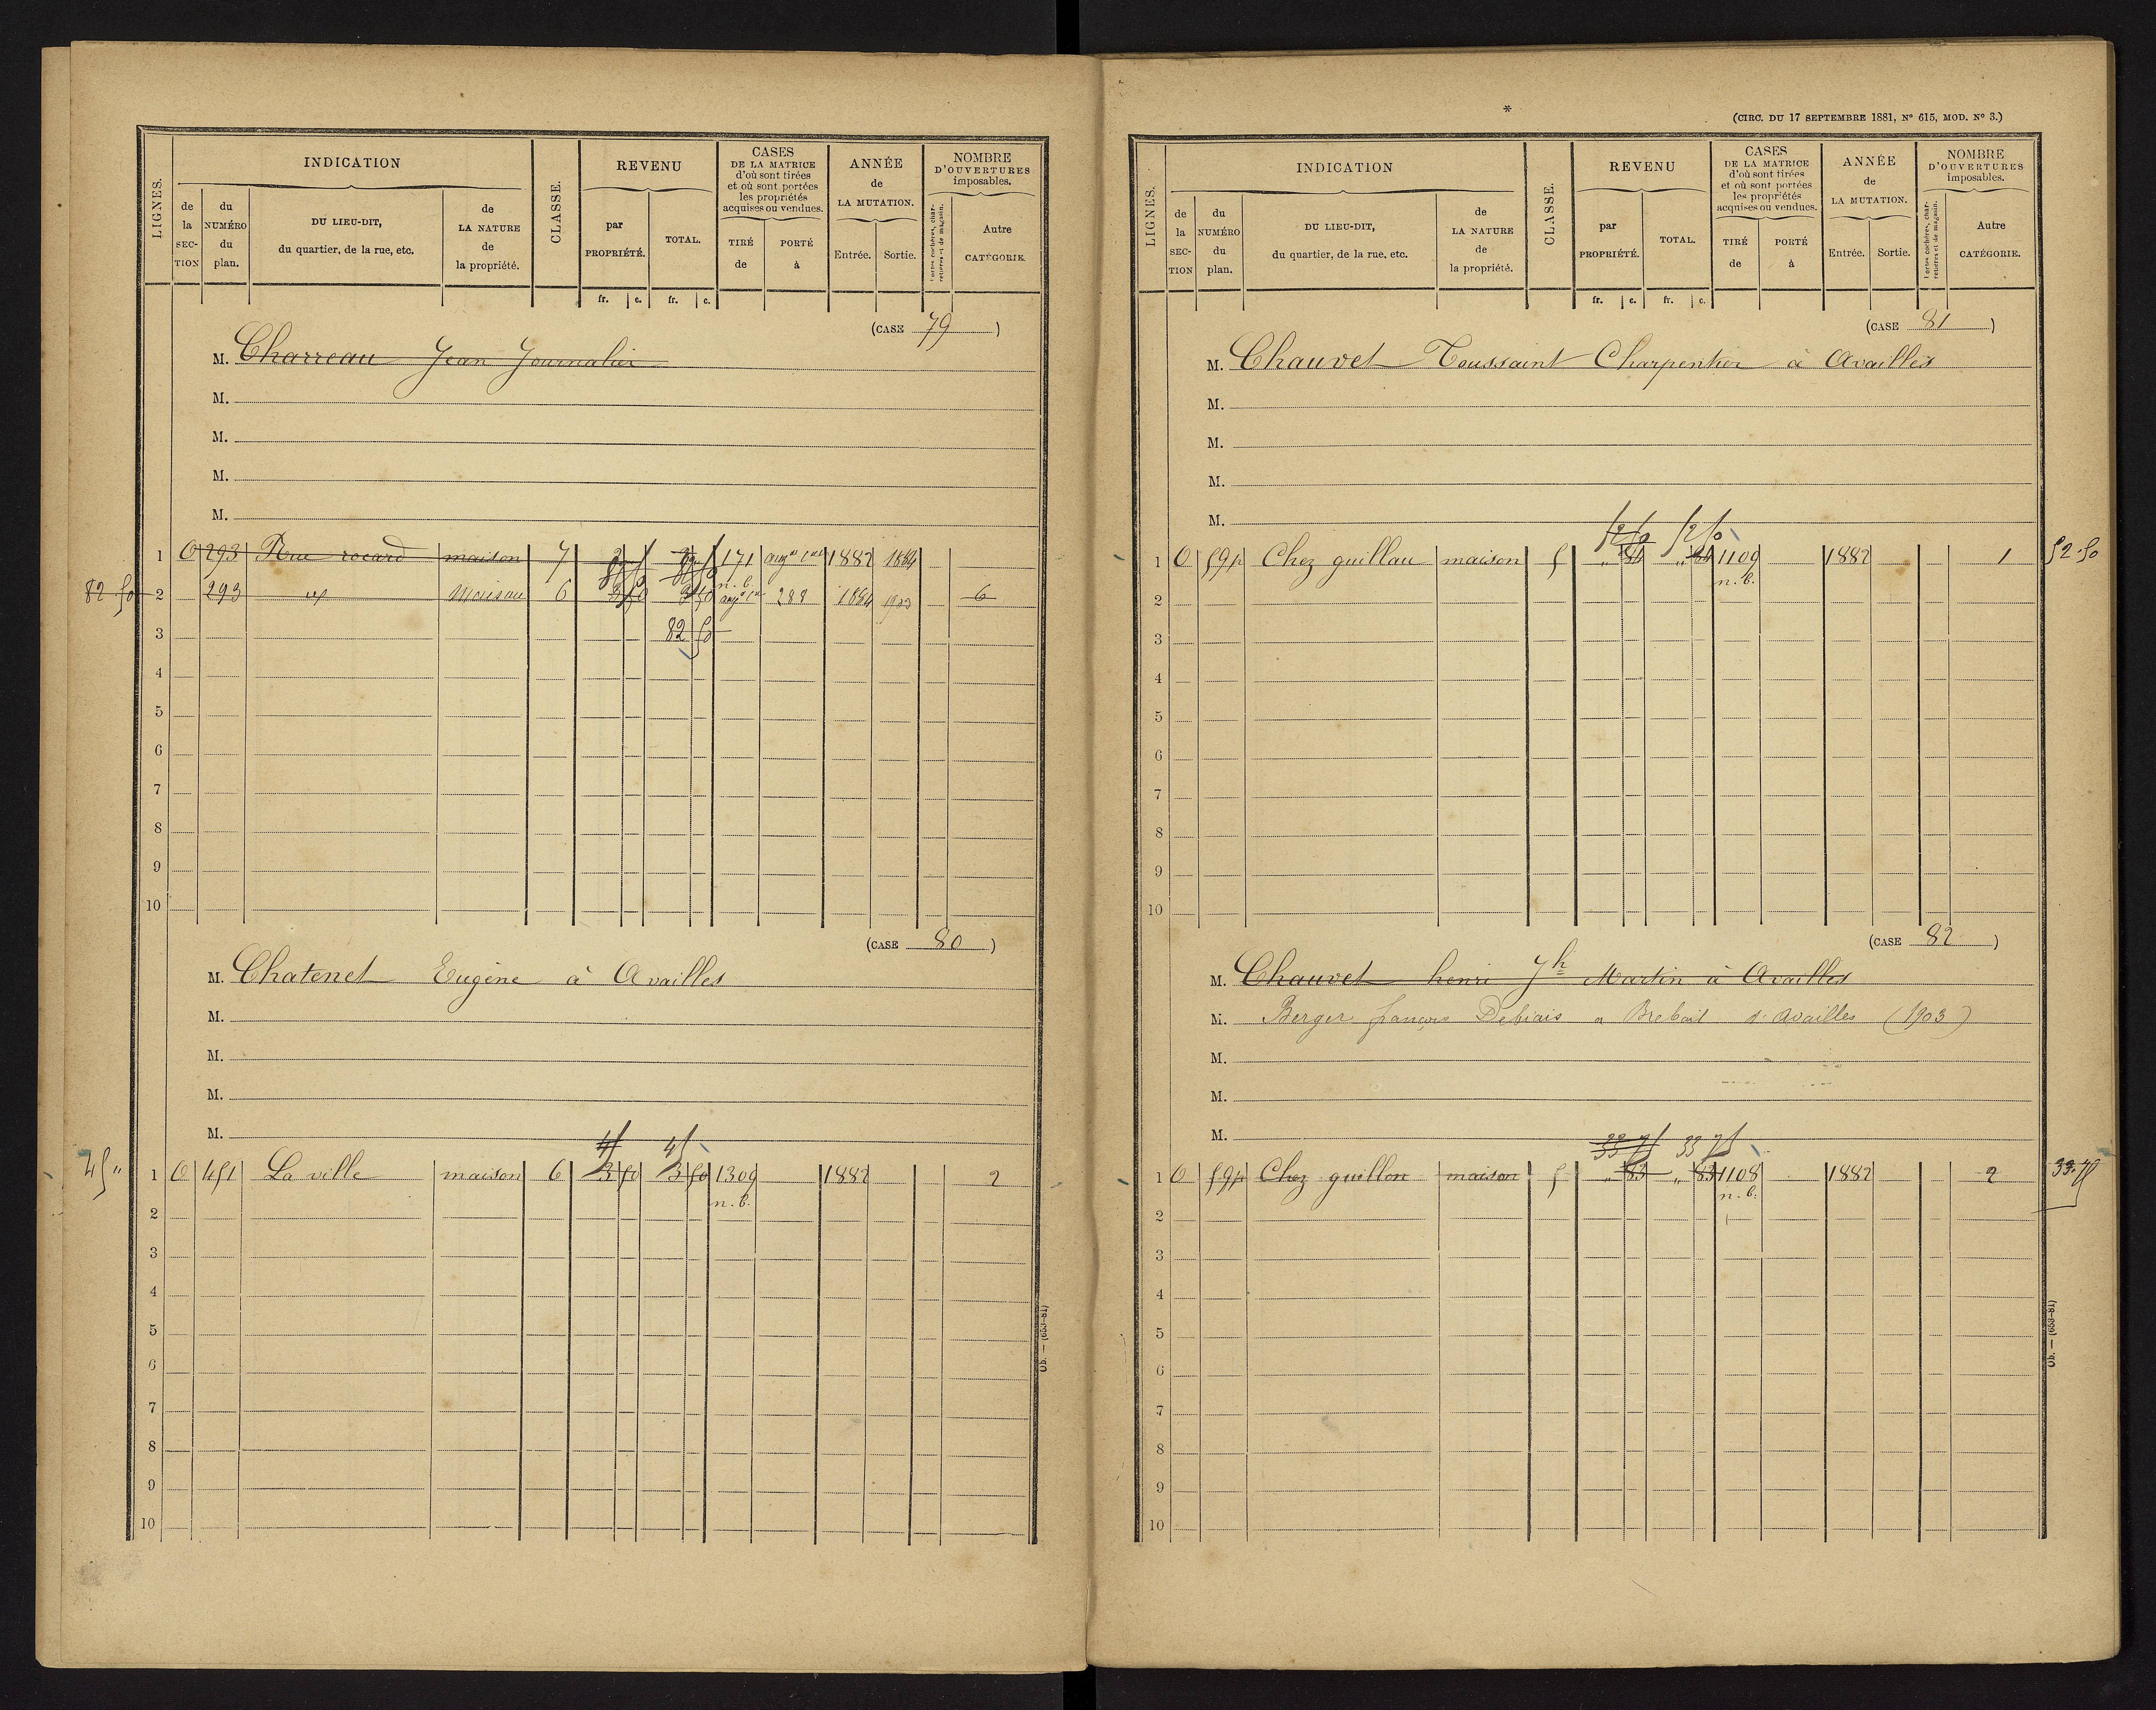 LIGNES.
INDICATION
CLASSE.
REVENU
CASES
DE LA MATRICE
d'où sont tirées
et où sont portées
les propriétés
acquises ou vendues.
ANNÉE
de
LA MUTATION.
NOMBRE
D'OUVERTURES
imposables.
de la SEC-TION
du NUMÉRO du plan.
DU LIEU-DIT,
du quartier, de la rue, etc.
de LA NATURE de la propriété.
par PROPRIÉTÉ.
TOTAL.
TIRÉ de
PORTÉ à
Entrée.
Sortie.
Portes cochères, char-
retières et de magasin.
Autre CATÉGORIE.
fr. c. fr. c.
(CASE 79)
M. Charreau Jean Journalier
M.
M.
M.
M.
1 O 293 Rue rocard maison 7 171 1882 1884
82 50 2 293 Maison 6 n. b. 288 1884 1903 6
3 82 50
4
5
6
7
8
9
10
(CASE 80)
M. Chatenet Eugène à Availles
M.
M.
M.
M.
45 45
45 " 1 O 451 La ville maison 6 3 50 3 50 1309 1882 2
n. b.
2
3
4
5
6
7
8
9
10
Ob. — (653-81)
*
(CIRC. DU 17 SEPTEMBRE 1881, N° 615, MOD. N° 3.)
LIGNES.
INDICATION
CLASSE.
REVENU
CASES
DE LA MATRICE
d'où sont tirées
et où sont portées
les propriétés
acquises ou vendues.
ANNÉE
de
LA MUTATION.
NOMBRE
D'OUVERTURES
imposables.
de la SEC-TION
du NUMÉRO du plan.
DU LIEU-DIT,
du quartier, de la rue, etc.
de LA NATURE de la propriété.
par PROPRIÉTÉ.
TOTAL.
TIRÉ de
PORTÉ à
Entrée.
Sortie.
Portes cochères, char-
retières et de magasin.
Autre CATÉGORIE.
fr. c. fr. c.
(CASE 81)
M. Chauvet Toussaint Charpentier à Availles
M.
M.
M.
M.
52 50 52 50
1 O 59 Chez guillau maison 5 " 84 " 84 1109 1882 1 52.50
n. b.
2
3
4
5
6
7
8
9
10
(CASE 82)
M. Chauvet henri Jh Martin à Availles
M. Berger françois Debiais a d'availles (1903)
M.
M.
M.
33 75 33 75
1 O 59 Chez guillon maison 5 " 83 " 83 1108 1882 2 33.75
n. b.
2
3
4
5
6
7
8
9
10
Ob. — (653-81)